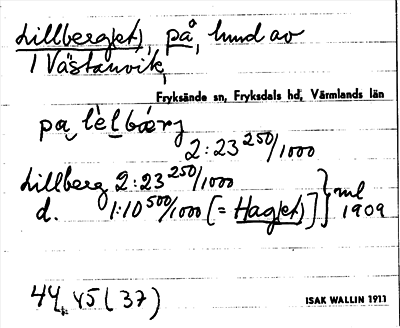 Lillberg(et), på, lund av
1 Västanvik,
Fryksände sn, Fryksdals hd, Värmlands län
pa lèlbærj
2:23 250/1000
Lillberg 2:23 250/1000
d. 1:10 500/1000 [= Hag(et)] } ml 1909
44, 45 (37)
ISAK WALLIN 1911